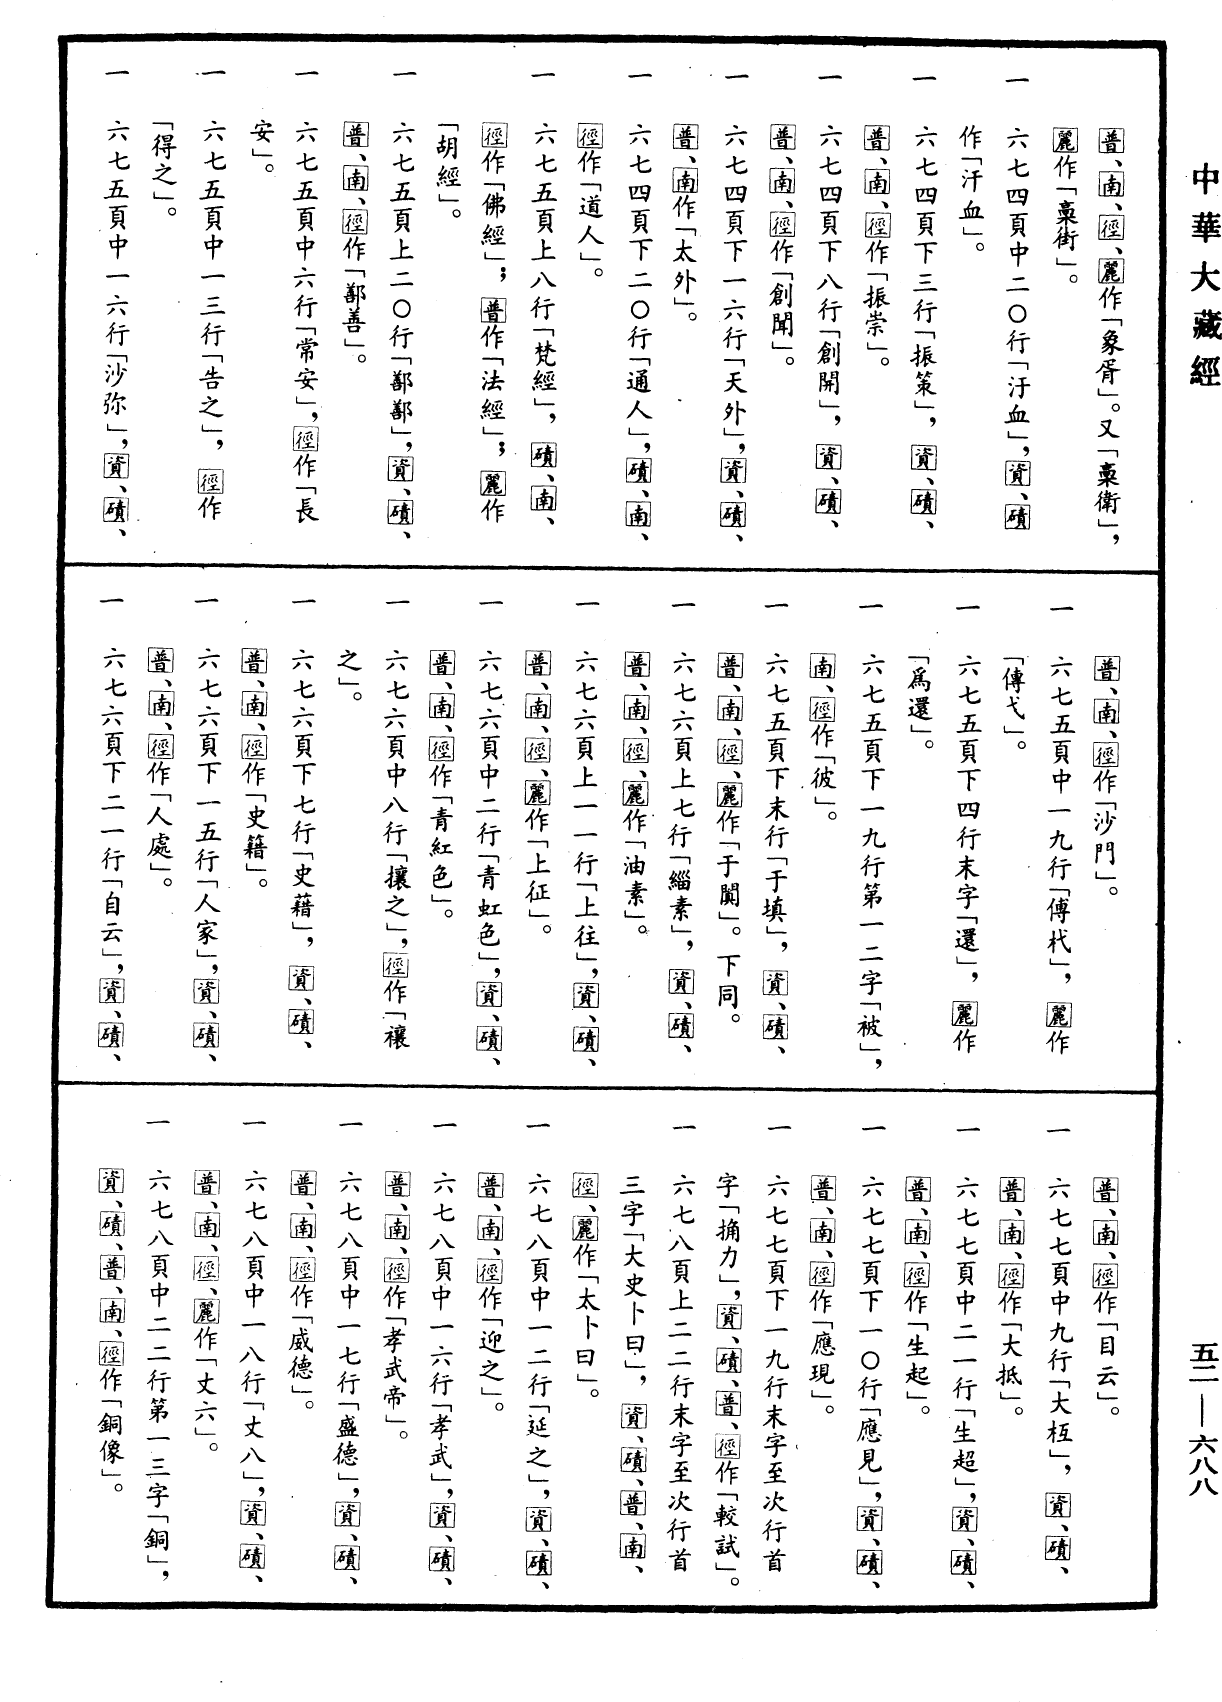 中華大藏經
普、南、徑、麗作「象胥」。又「稾衛」，
麗作「稾街」。
一　六七四頁中二〇行「汙血」，資、磧
作「汗血」。
一　六七四頁下三行「振策」，資、磧、
普、南、徑作「振崇」。
一　六七四頁下八行「創開」，資、磧、
普、南、徑作「創聞」。
一　六七四頁下一六行「天外」，資、磧、
普、南作「太外」。
一　六七四頁下二〇行「通人」，磧、南、
徑作「道人」。
一　六七五頁上八行「梵經」，磧、南、
徑作「佛經」；普作「法經」；麗作
「胡經」。
一　六七五頁上二〇行「鄯鄯」，資、磧、
普、南、徑作「鄯善」。
一　六七五頁中六行「常安」，徑作「長
安」。
一　六七五頁中一三行「告之」，徑作
「得之」。
一　六七五頁中一六行「沙弥」，資、磧、
普、南、徑作「沙門」。
一　六七五頁中一九行「傅杙」，麗作
「傳弋」。
一　六七五頁下四行末字「還」，麗作
「爲還」。
一　六七五頁下一九行第一二字「被」，
南、徑作「彼」。
一　六七五頁下末行「于填」，資、磧、
普、南、徑、麗作「于闐」。下同。
一　六七六頁上七行「緇素」，資、磧、
普、南、徑、麗作「油素」。
一　六七六頁上一一行「上往」，資、磧、
普、南、徑、麗作「上征」。
一　六七六頁中二行「青虹色」，資、磧、
普、南、徑作「青紅色」。
一　六七六頁中八行「攘之」，徑作「禳
之」。
一　六七六頁下七行「史藉」，資、磧、
普、南、徑作「史籍」。
一　六七六頁下一五行「人家」，資、磧、
普、南、徑作「人處」。
一　六七六頁下二一行「自云」，資、磧、
普、南、徑作「目云」。
一　六七七頁中九行「大柢」，資、磧、
普、南、徑作「大抵」。
一　六七七頁中二一行「生超」，資、磧、
普、南、徑作「生起」。
一　六七七頁下一〇行「應見」，資、磧、
普、南、徑作「應現」。
一　六七七頁下一九行末字至次行首
字「捔力」，資、磧、普、徑作「較試」。
一　六七八頁上二二行末字至次行首
三字「大史卜曰」，資、磧、普、南、
徑、麗作「太卜曰」。
一　六七八頁中一二行「延之」，資、磧、
普、南、徑作「迎之」。
一　六七八頁中一六行「孝武」，資、磧、
普、南、徑作「孝武帝」。
一　六七八頁中一七行「盛德」，資、磧、
普、南、徑作「威德」。
一　六七八頁中一八行「丈八」，資、磧、
普、南、徑、麗作「丈六」。
一　六七八頁中二二行第一三字「銅」，
資、磧、普、南、徑作「銅像」。
五二—六八八